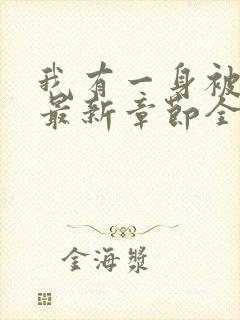 我有一身被
最新章节全
金海漿